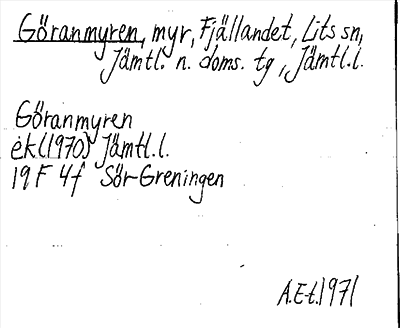 Göranmyren, myr, Fjällandet, Lits sn,
Jämtl. n. doms. tg, Jämtl.l.
Göranmyren
ek (1970) Jämtl.l.
19 F 4f Sör-Greningen
A.E-t.1971